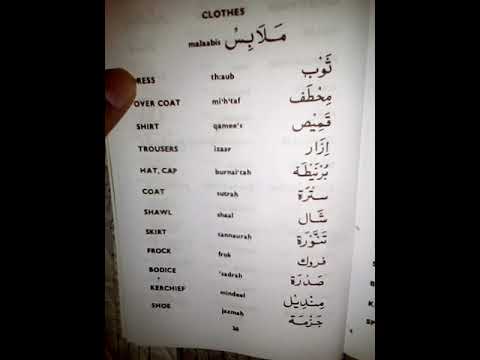 CLOTHES
malaabis مَلَابِسُ
RESS th:aub ثَوْب
OVER COAT mi'h'taf مِحْطَف
SHIRT qamee's قَمِيْص
TROUSERS izaar اِزَار
HAT, CAP burnai'tah بُرْنَيْطَة
COAT sutrah سُتْرَة
SHAWL shaal شَال
SKIRT tannaurah تَنَّوْرَة
FROCK frok فروك
BODICE 'sadrah صَدْرَة
KERCHIEF mindeel مِنْدِيْل
SHOE jazmah جَزْمَة